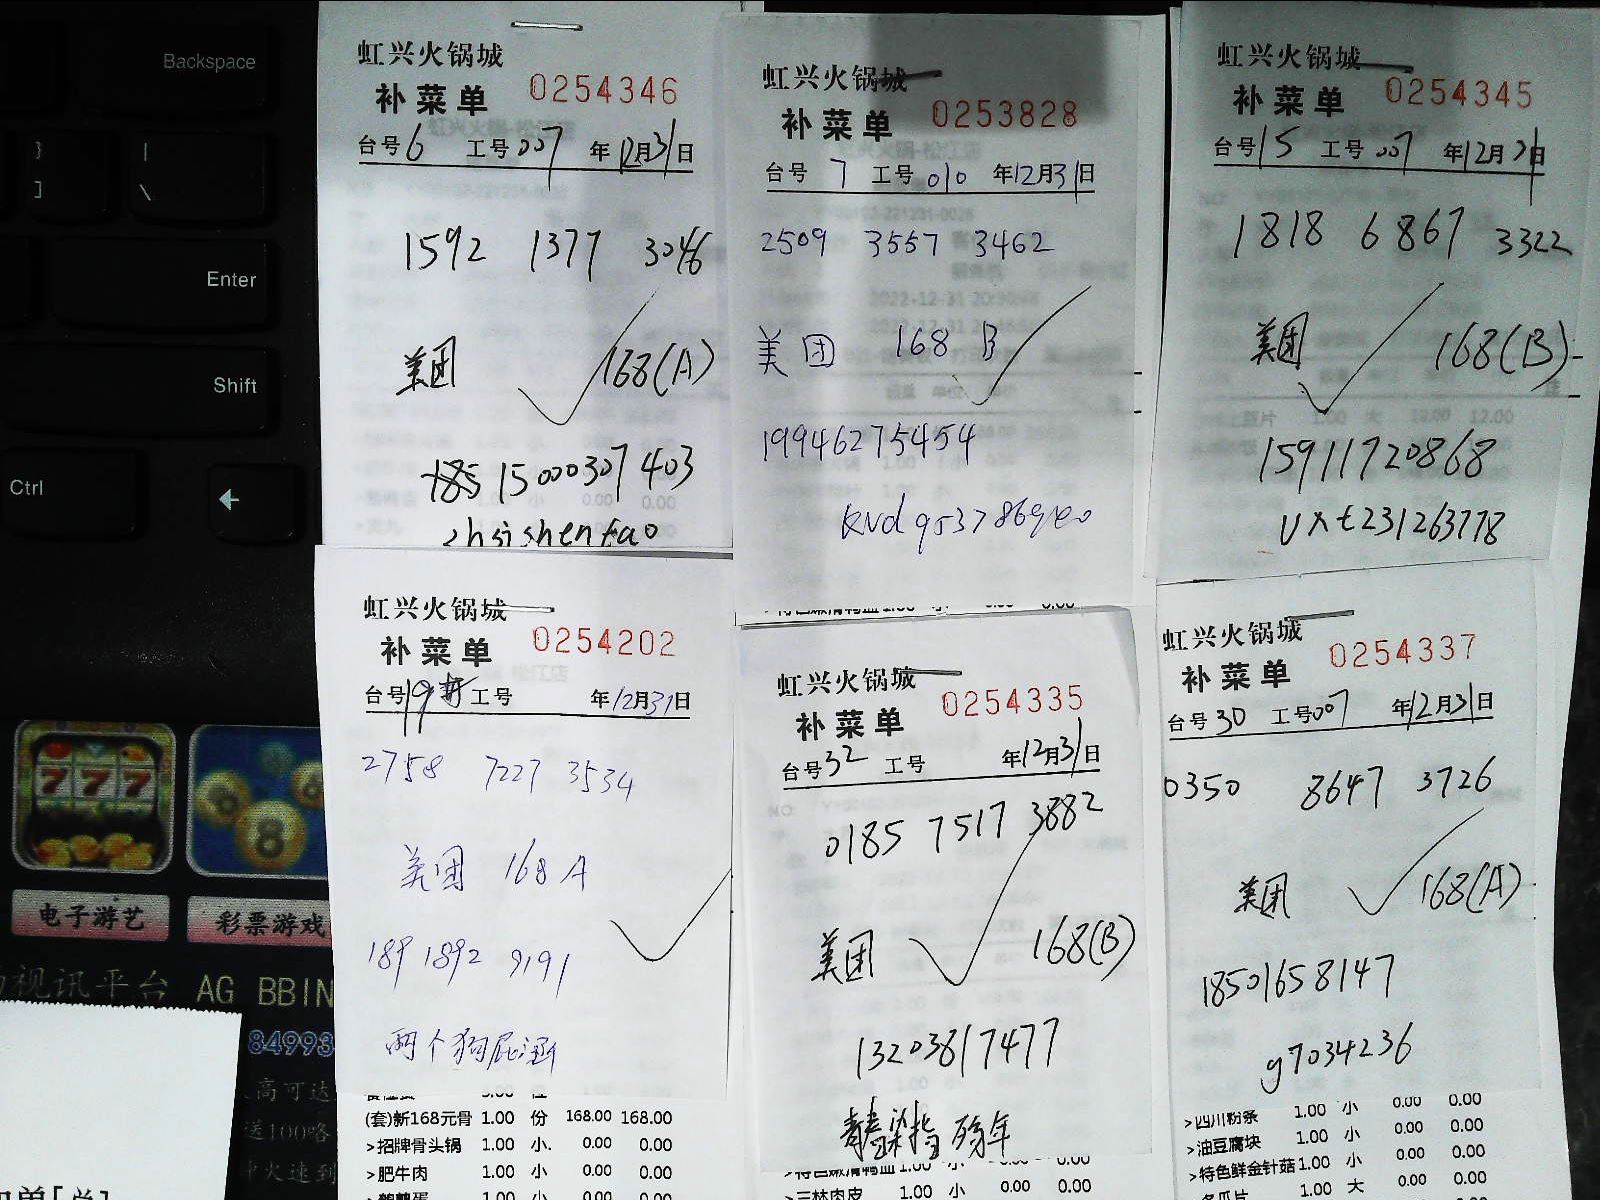 Backspace
}
]
|
\
Enter
Shift
Ctrl
电子游艺
彩票游戏
视讯平台 AG BBIN
84993
高可达
虹兴火锅城
补菜单 0254346
台号6 工号007 年12月31日
1592 1377 3046
美团 168(A)
15000307403
zhsishentao
虹兴火锅城
补菜单 0253828
台号 7 工号010 年12月31日
2509 3557 3462
美团 168 B
19946275454
虹兴火锅城
补菜单 0254345
台号15 工号007 年12月31日
1818 6867 3322
美团 168(B)
15911720868
Uxt231263778
虹兴火锅城
补菜单 0254202
台号19 工号 年12月31日
2758 7227 3534
美团 168 A
189 1892 9191
两个狗屁
(套)新168元骨 1.00 份 168.00 168.00
>招牌骨头锅 1.00 小 0.00 0.00
>肥牛肉 1.00 小 0.00 0.00
虹兴火锅城
补菜单 0254335
台号32 工号 年12月31日
0185 7517 3882
美团 168(B)
13203817477
1.00 小 0.00 0.00
1.00 小 0.00 0.00
虹兴火锅城
补菜单 0254337
台号30 工号007 年12月31日
0350 8647 3726
美团 168(A)
18501658147
g7034236
>四川粉条 1.00 小 0.00 0.00
>油豆腐块 1.00 小 0.00 0.00
>特色鲜金针菇 1.00 小 0.00 0.00
1.00 大 0.00 0.00